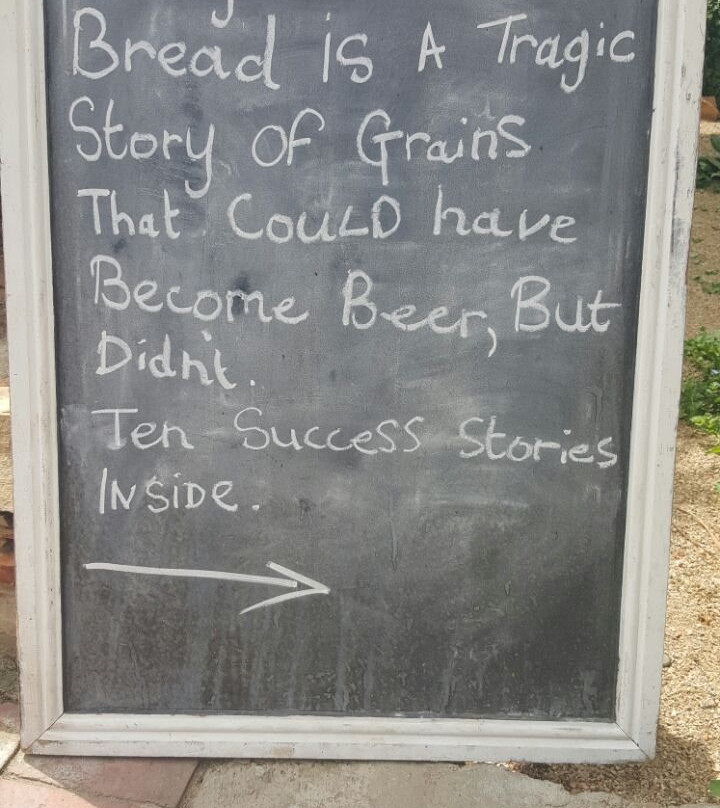 Bread is A Tragic
Story Of Grains
That COULD have
Become Beer, But
Didn't.
Ten Success Stories
INSiDe.